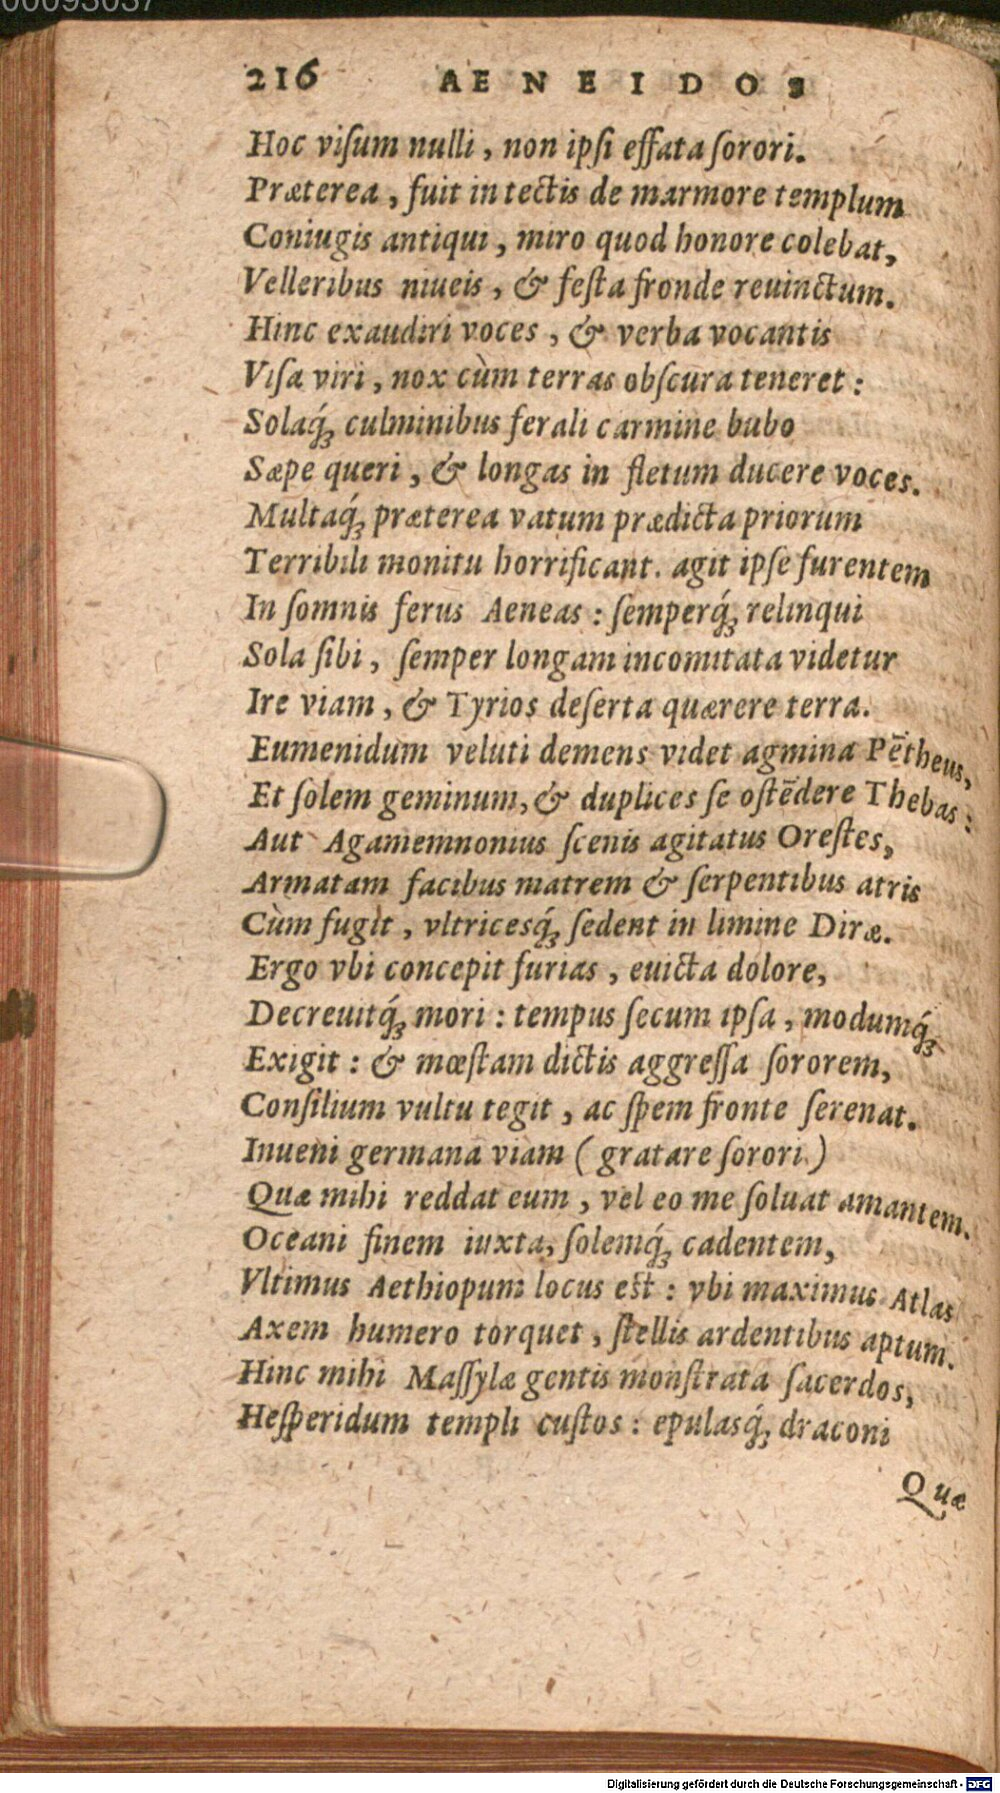 216 AENEIDOS
Hoc viſum nulli, non ipſi effata ſorori.
Præterea, fuit in tectis de marmore templum
Coniugis antiqui, miro quod honore colebat,
Velleribus niueis, & feſta fronde reuinctum.
Hinc exaudiri voces, & verba vocantis
Viſa viri, nox cùm terras obſcura teneret:
Solaq́ꝫ culminibus ferali carmine bubo
Sæpe queri, & longas in fletum ducere voces.
Multaq́ꝫ præterea vatum prædicta priorum
Terribili monitu horrificant. agit ipſe furentem
In ſomnis ferus Aeneas: ſemperq́ꝫ relinqui
Sola ſibi, ſemper longam incomitata videtur
Ire viam, & Tyrios deſerta quærere terra.
Eumenidum veluti demens videt agmina Pētheus,
Et ſolem geminum, & duplices ſe oſtēdere Thebas:
Aut Agamemnonius ſcenis agitatus Oreſtes,
Armatam facibus matrem & ſerpentibus atris
Cùm fugit, vltriceſq́ꝫ ſedent in limine Diræ.
Ergo vbi concepit furias, euicta dolore,
Decreuitq́ꝫ mori: tempus ſecum ipſa, modumq́ꝫ
Exigit: & mœſtam dictis aggreſſa ſororem,
Conſilium vultu tegit, ac ſpem fronte ſerenat.
Inueni germana viam (gratare ſorori)
Quæ mihi reddat eum, vel eo me ſoluat amantem.
Oceani finem iuxta, ſolemq́ꝫ cadentem,
Vltimus Aethiopum locus eſt: vbi maximus Atlas
Axem humero torquet, ſtellis ardentibus aptum.
Hinc mihi Maſſylæ gentis monſtrata ſacerdos,
Heſperidum templi cuſtos: epulaſq́ꝫ draconi
Quæ
Digitalisierung gefördert durch die Deutsche Forschungsgemeinschaft - DFG